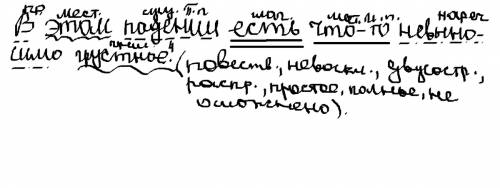 пр. мест. сущ. П.п глаг мест. И.п. нареч
В этом падении есть что-то невыно-
прил
симо грустное. (повеств., невоскл., двусост.,
распр., простое, полное, не
осложнено).